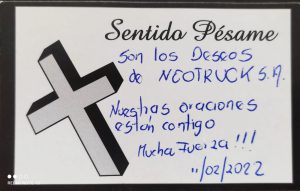 Sentido Pésame
Son los Deseos
de NEOTRUCK S.A.
Nuestras oraciones
están contigo
Mucha Fuerza!!!
11/02/2022